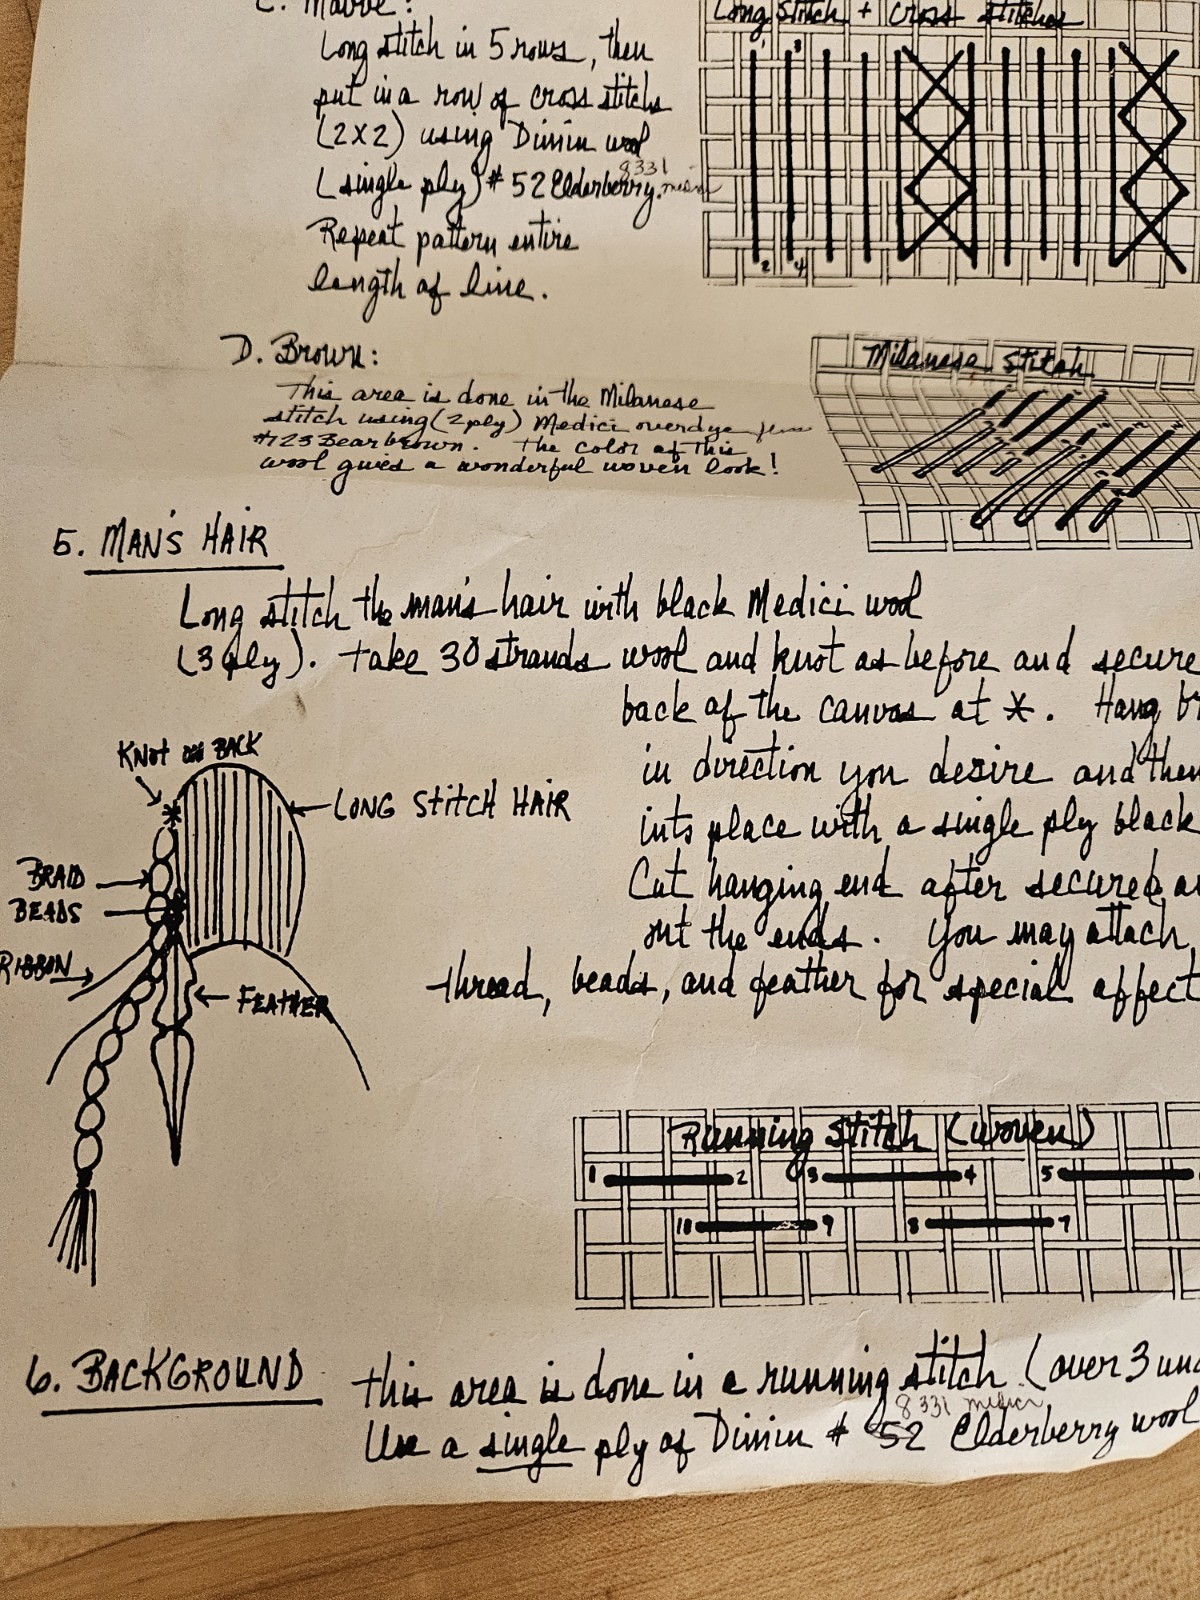 C. Mauve:
Long stitch in 5 rows, then
put in a row of cross stitchs
(2x2) using Dimin wool
8331
(single ply) # 52 Elderberry.
Repeat pattern entire
length of line.
Long Stitch + Cross stitches
1 3
2 4
D. Brown:
This area is done in the Milanese
stitch using (2 ply) Medici overdye
#123 Bearbrown. The color of this
wool gives a wonderful woven look!
Milanese Stitch
5. MAN'S HAIR
Long stitch the man's hair with black Medici wool
(3 ply). Take 30 strands wool and knot as before and secure
back of the canvas at *. Hang
in direction you desire and then
into place with a single ply black
Cut hanging end after secured
out the ends. You may attach
thread, beads, and feather for special affect
KNOT ON BACK
LONG STITCH HAIR
BRAID
BEADS
RIBBON
FEATHER
Running Stitch (woven)
1 2 3 4 5
10 9 8 7
6. BACKGROUND This area is done in a running stitch (over 3
8331 medici
Use a single ply of Dimin # 52 Elderberry wool